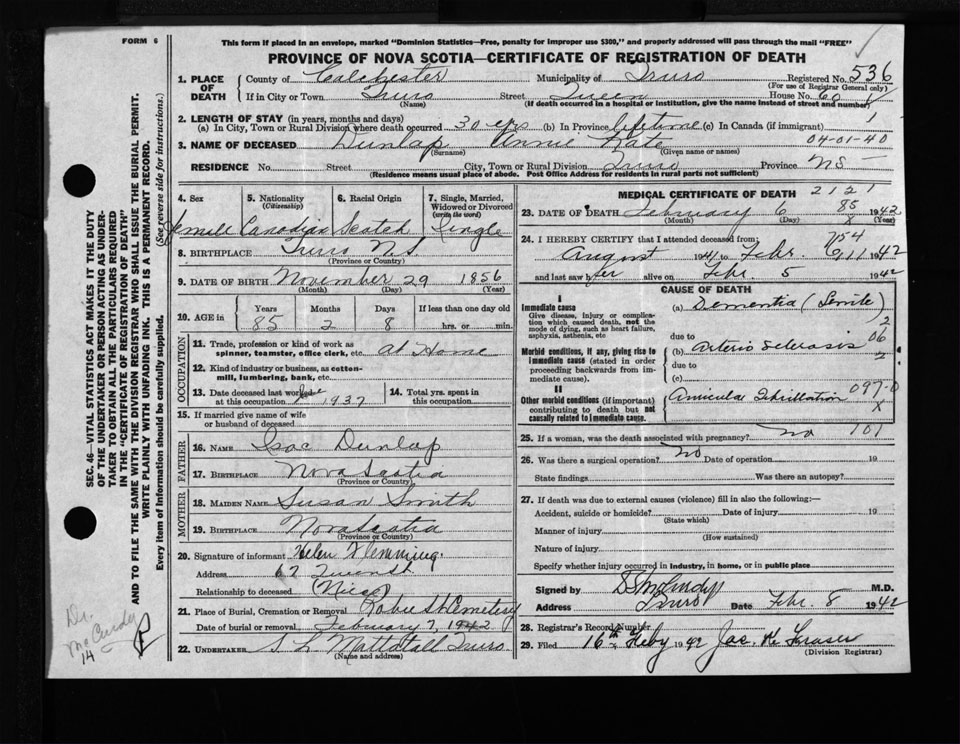 FORM 6
This form if placed in an envelope, marked "Dominion Statistics—Free, penalty for improper use $300," and properly addressed will pass through the mail "FREE"
PROVINCE OF NOVA SCOTIA—CERTIFICATE OF REGISTRATION OF DEATH
1. PLACE OF DEATH
County of Colchester Municipality of Truro Registered No. 536
(For use of Registrar General only)
If in City or Town Truro Street Queen House No. 60
(Name) (If death occurred in a hospital or institution, give the name instead of street and number)
2. LENGTH OF STAY (in years, months and days)
(a) In City, Town or Rural Division where death occurred 30 yrs (b) In Province lifetime (c) In Canada (if immigrant) 1
3. NAME OF DECEASED Dunlap Annie Kate 04-01-40
(Surname) (Given name or names)
RESIDENCE No. Street City, Town or Rural Division Truro Province NS —
(Residence means usual place of abode. Post Office Address for residents in rural parts not sufficient)
4. Sex
Female
5. Nationality (Citizenship)
Canadian
6. Racial Origin
Scotch
7. Single, Married, Widowed or Divorced (write the word)
Single
8. BIRTHPLACE Truro N.S.
(Province or Country)
9. DATE OF BIRTH November 29 1856
(Month) (Day)
10. AGE in Years Months Days If less than one day old
85 2 8 hrs. or min.
OCCUPATION
11. Trade, profession or kind of work as spinner, teamster, office clerk, etc. At Home
12. Kind of industry or business, as cotton-mill, lumbering, bank, etc.
13. Date deceased last worked at this occupation 1937
14. Total yrs. spent in this occupation
15. If married give name of wife or husband of deceased
FATHER
16. NAME Isac Dunlap
17. BIRTHPLACE Nova Scotia
(Province or Country)
MOTHER
18. MAIDEN NAME Susan Smith
19. BIRTHPLACE Nova Scotia
(Province or Country)
20. Signature of informant Helen Flemming
Address 67
Relationship to deceased (Niece)
21. Place of Burial, Cremation or Removal Robie St Cemetery
Date of burial or removal February 7, 1942
22. UNDERTAKER S. L. Mattatall Truro
(Name and address)
MEDICAL CERTIFICATE OF DEATH 2121
23. DATE OF DEATH February 6 85 1942
(Month) (Day) X
24. I HEREBY CERTIFY that I attended deceased from
August 1941 to Febr. 6 1942
and last saw her alive on Febr. 5 1942
CAUSE OF DEATH
I
Immediate cause
Give disease, injury or complication which caused death, not the mode of dying, such as heart failure, asphyxia, asthenia, etc
(a) Dementia (Senile)
due to
Morbid conditions, if any, giving rise to immediate cause (stated in order proceeding backwards from immediate cause).
(b) Arterio Sclerosis
due to
(c)
II
Other morbid conditions (if important) contributing to death but not causally related to immediate cause.
Auricular Fibrillation 097-0
X
25. If a woman, was the death associated with pregnancy? no 101
26. Was there a surgical operation? no Date of operation 19
State findings Was there an autopsy?
27. If death was due to external causes (violence) fill in also the following:—
Accident, suicide or homicide? Date of injury 19
(State which)
Manner of injury
(How sustained)
Nature of injury
Specify whether injury occurred in industry, in home, or in public place
Signed by M.D.
Address Truro Date Febr. 8 1942
28. Registrar's Record Number
29. Filed 16th Feby 1942 Jac. K. Fraser
(Division Registrar)
SEC. 46—VITAL STATISTICS ACT MAKES IT THE DUTY
OF THE UNDERTAKER OR PERSON ACTING AS UNDERTAKER TO OBTAIN ALL THE PARTICULARS REQUIRED
IN THE "CERTIFICATE OF REGISTRATION OF DEATH"
AND TO FILE THE SAME WITH THE DIVISION REGISTRAR WHO SHALL ISSUE THE BURIAL PERMIT.
WRITE PLAINLY WITH UNFADING INK. THIS IS A PERMANENT RECORD.
Every item of Information should be carefully supplied. (See reverse side for instructions.)
Dr.
McCurdy
14